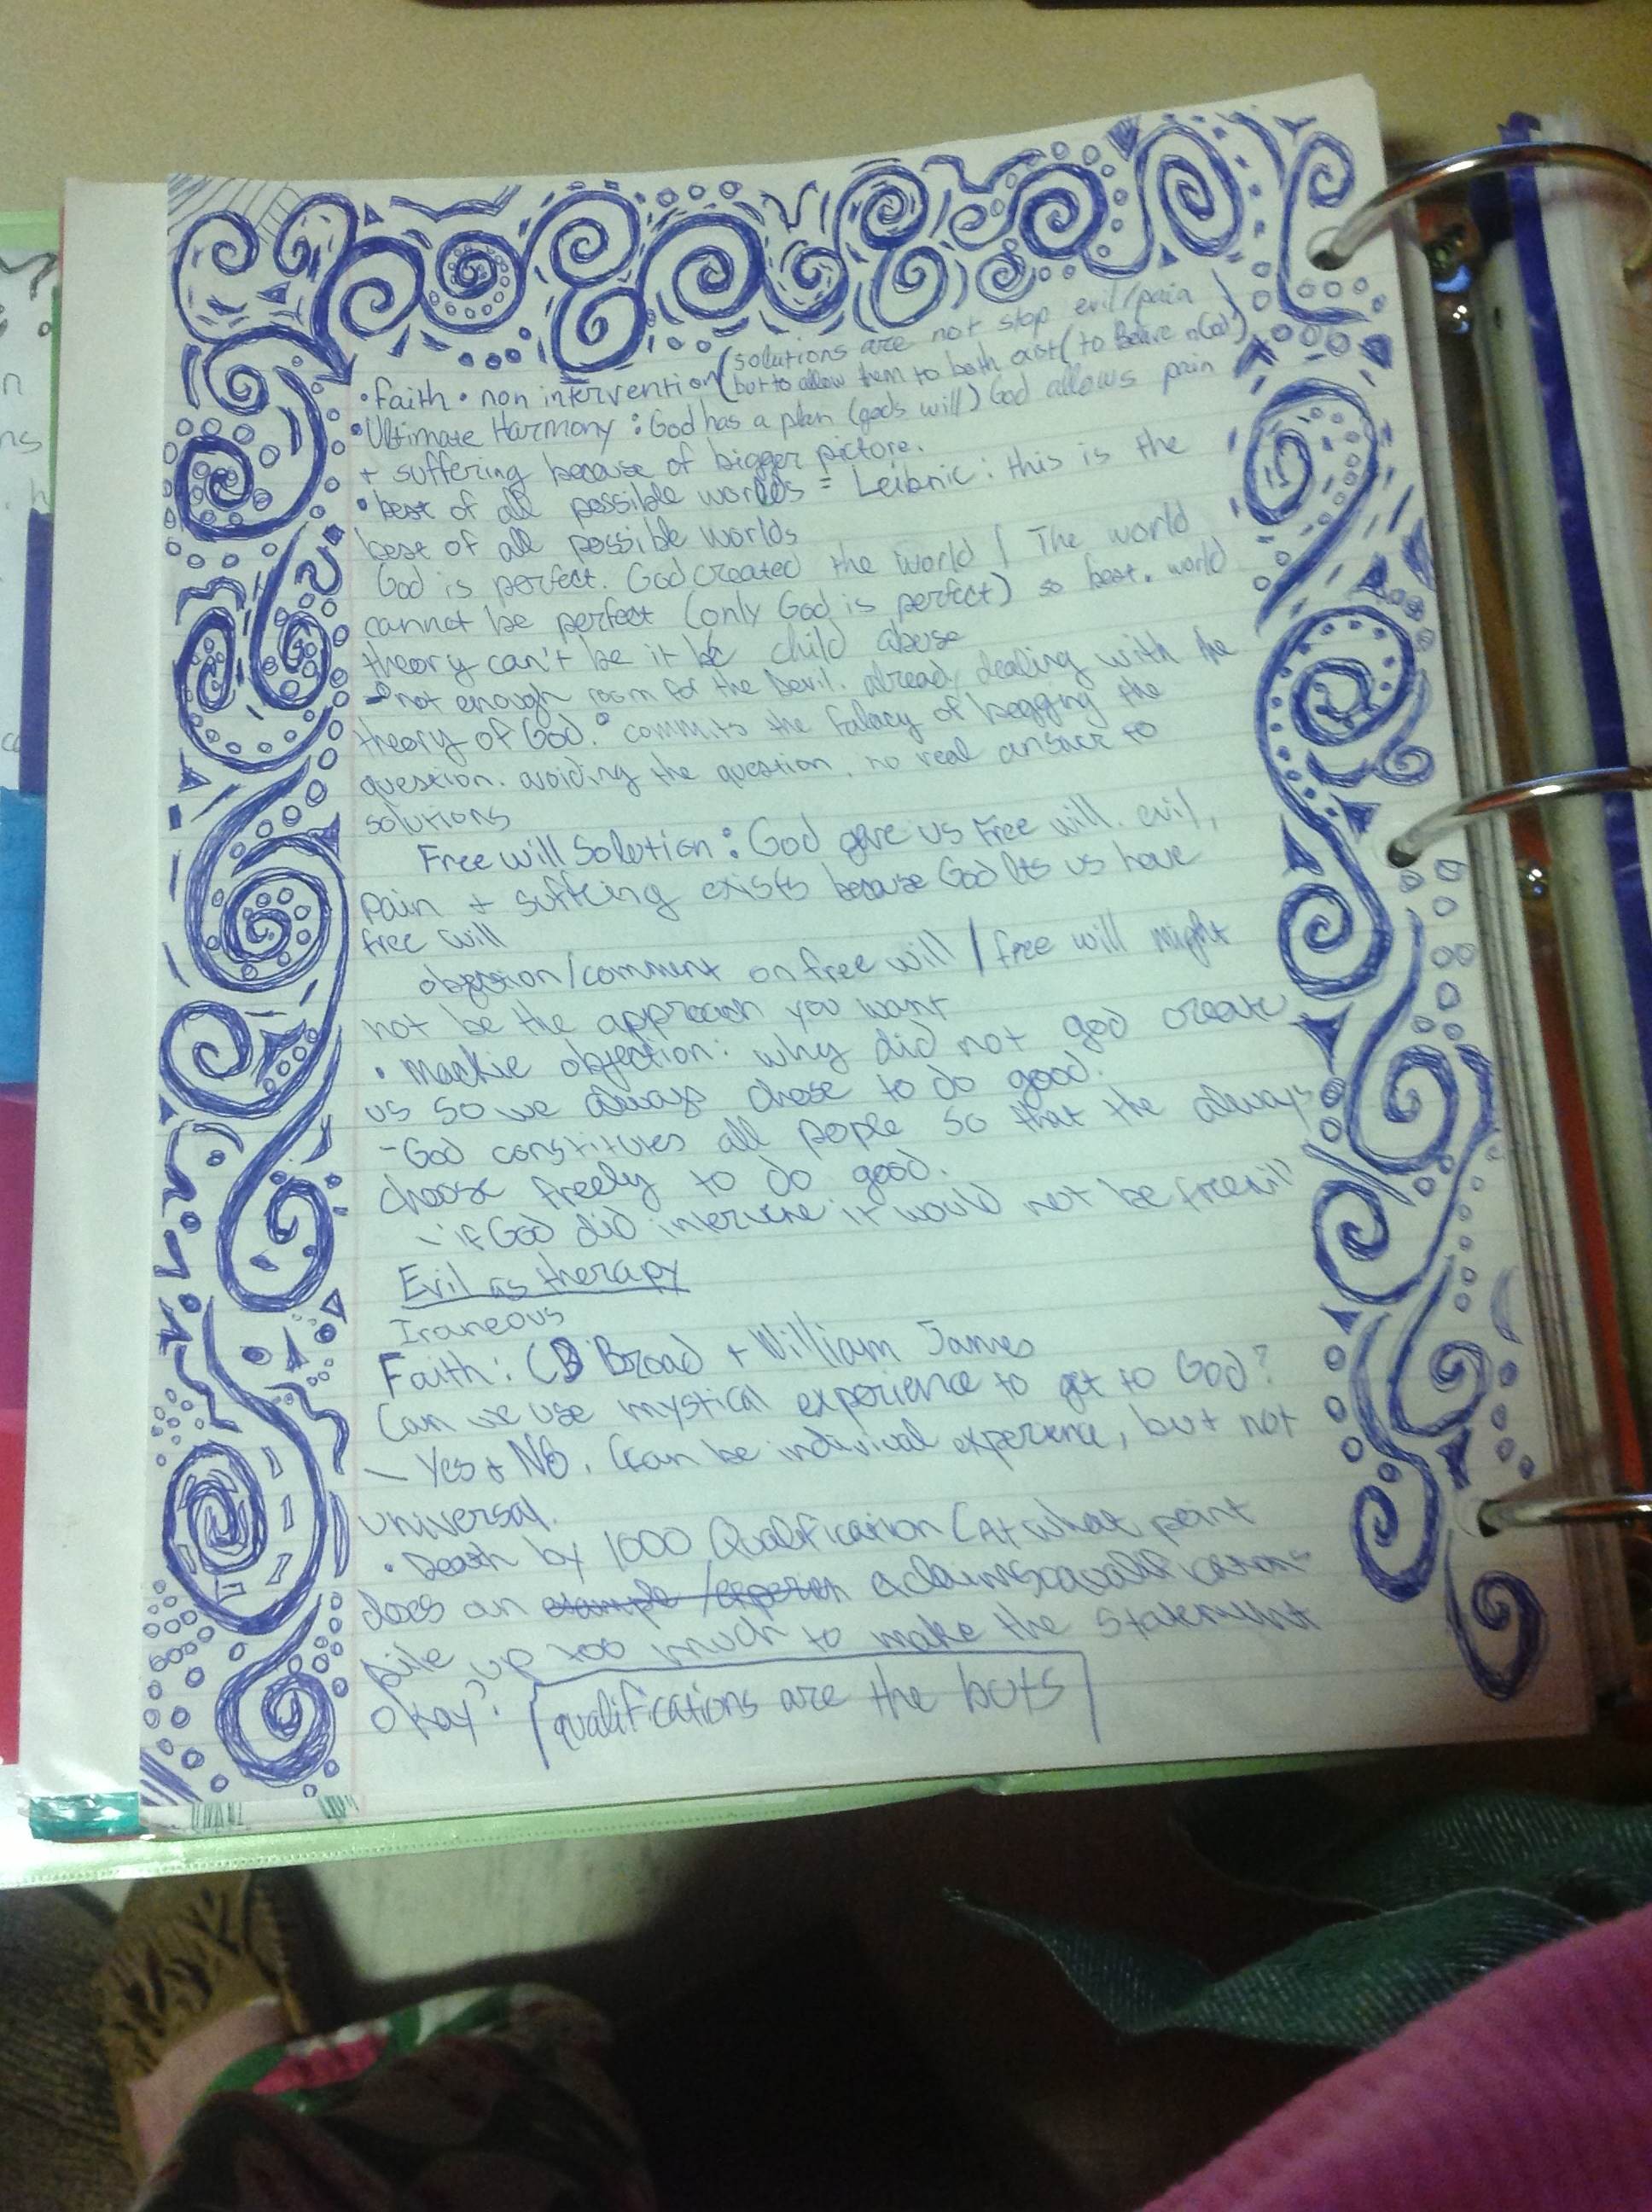 (solutions are not stop evil/pain
• Faith • non intervention (but to allow them to both exist (to
• Ultimate Harmony : God has a plan (gods will) God allows pain
+ suffering because of bigger picture.
• best of all possible worlds = Leibnic : this is the
best of all possible worlds
God is perfect. God created the world / The world
cannot be perfect (only God is perfect) so best. world
theory can't be it bc child abuse
not enough room for the Devil. already dealing with the
theory of God. ° commits the falacy of begging the
question. avoiding the question, no real answer to
solutions
Free will Solution : God gave us Free will. evil,
pain + suffring exists because God lets us have
free will
objection/comment on free will / free will might
not be the approach you want
• Mackie objection: why did not god create
us so we always chose to do good.
- God constitutes all people so that the always
choose freely to do good.
- if God did intervene it would not be freewill
Evil as therapy
Iraneous
Faith : CB Broad + William James
Can we use mystical experience to get to God?
- Yes + No. Can be indivival experience, but not
universal.
• Death by 1000 Qualification (At what point
does an example / a claims qualifications
pile up too much to make the statement
okay? qualifications are the buts